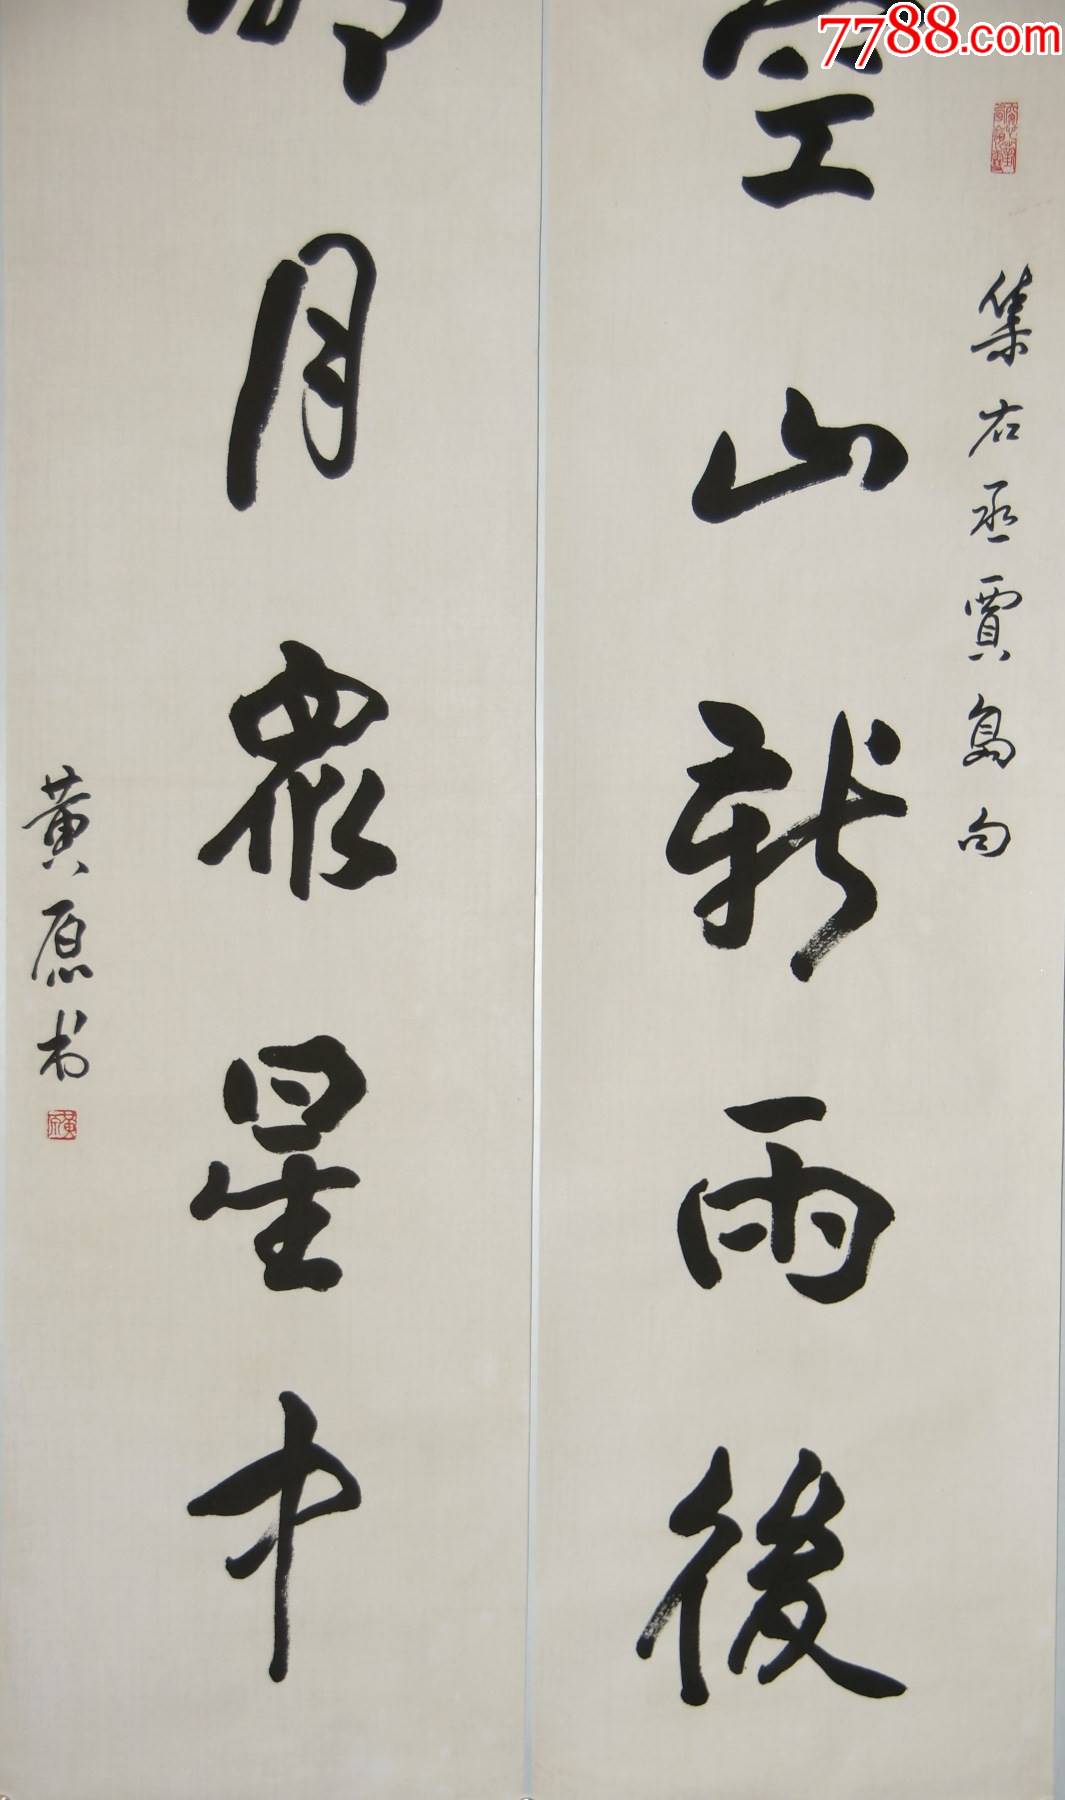 7788.com
集右丞賈島句
空山新雨後
月衆星中
黄原书
黄原